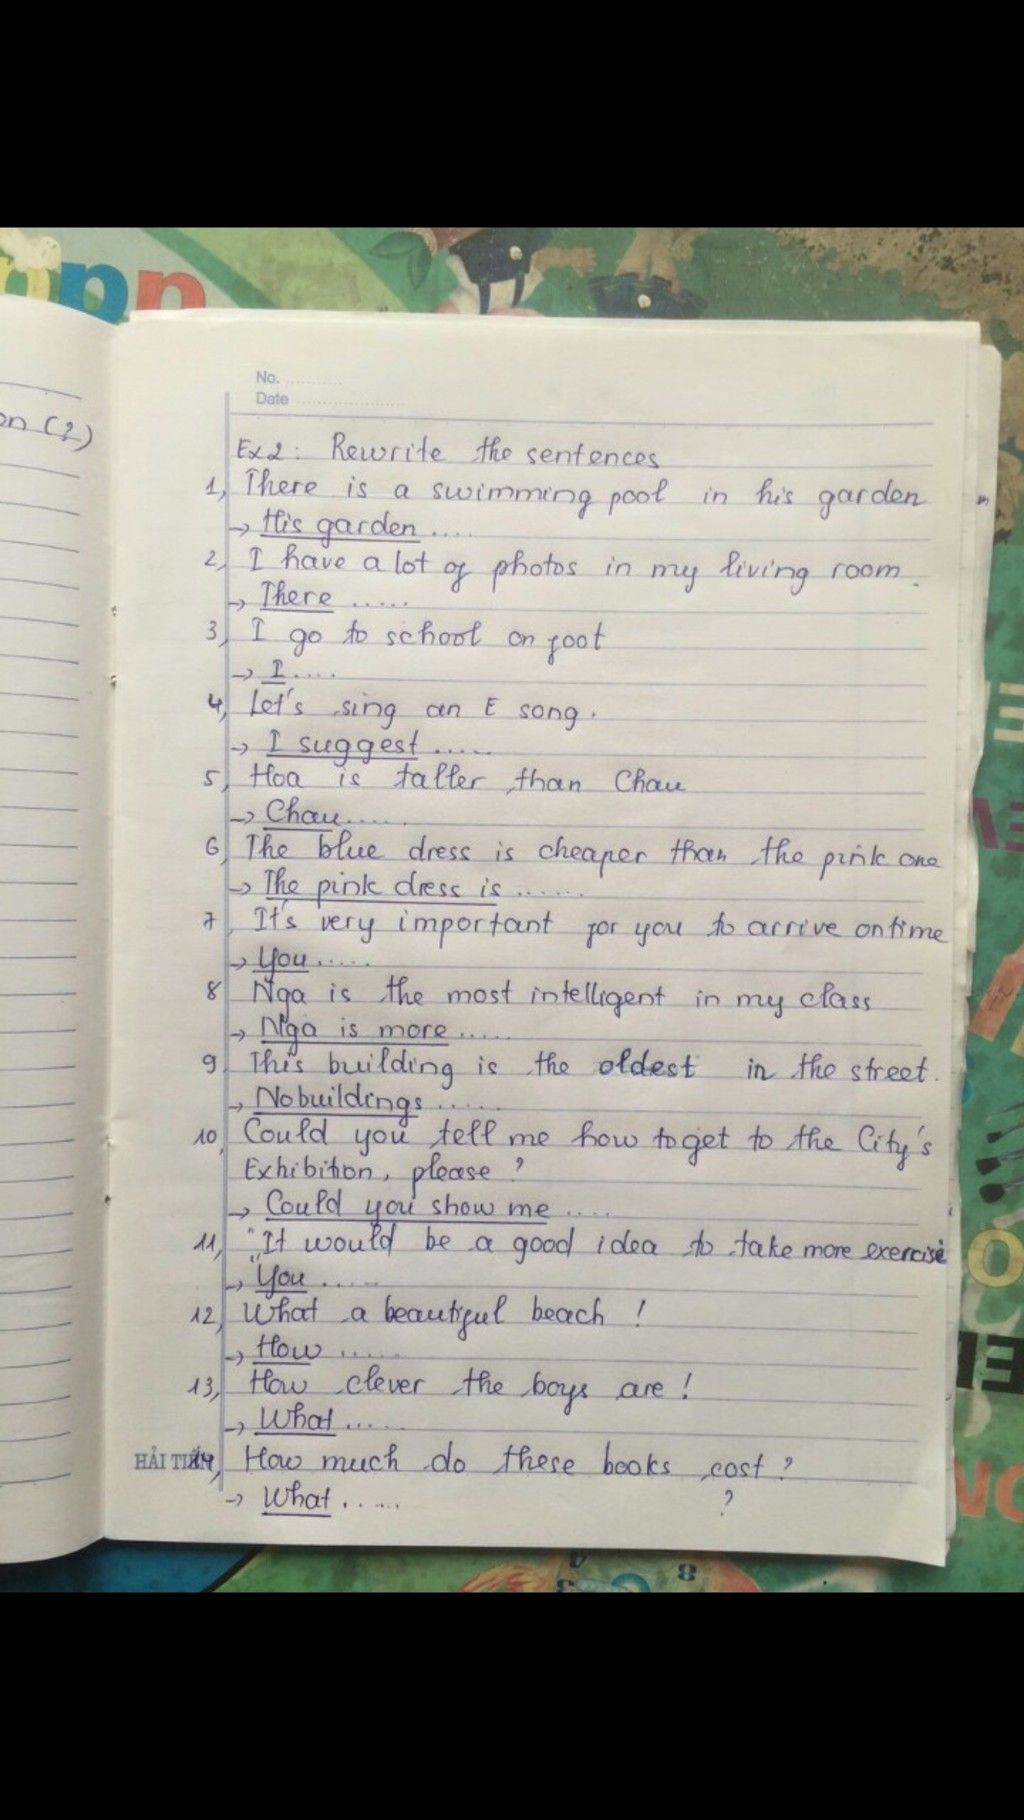 on (2)
No. ............
Date ......................
Ex2: Rewrite the sentences
1, There is a swimming pool in his garden
→ His garden ....
2, I have a lot of photos in my living room.
→ There .....
3, I go to school on foot
→ I ....
4, Let's sing an E song.
→ I suggest .....
5, Hoa is taller than Chau
→ Chau ......
6, The blue dress is cheaper than the pink one
→ The pink dress is ......
7, It's very important for you to arrive on time
→ You .....
8 Nga is the most intelligent in my class
→ Nga is more .....
9, This building is the oldest in the street.
→ No buildings ......
10, Could you tell me how to get to the City's
Exhibition, please ?
→ Could you show me ....
11, "It would be a good idea to take more exercise
→ "You .....
12, What a beautiful beach !
→ How .....
13, How clever the boys are !
→ What .....
HẢI TIẾN 14, How much do these books cost ?
→ What ..... ?